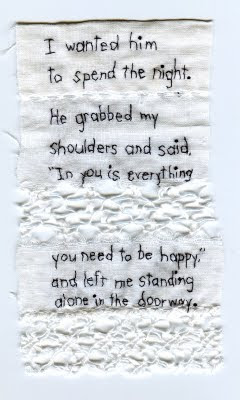 I wanted him
to spend the night.
He grabbed my
shoulders and said,
"In you is everything
you need to be happy,"
and left me standing
alone in the doorway.